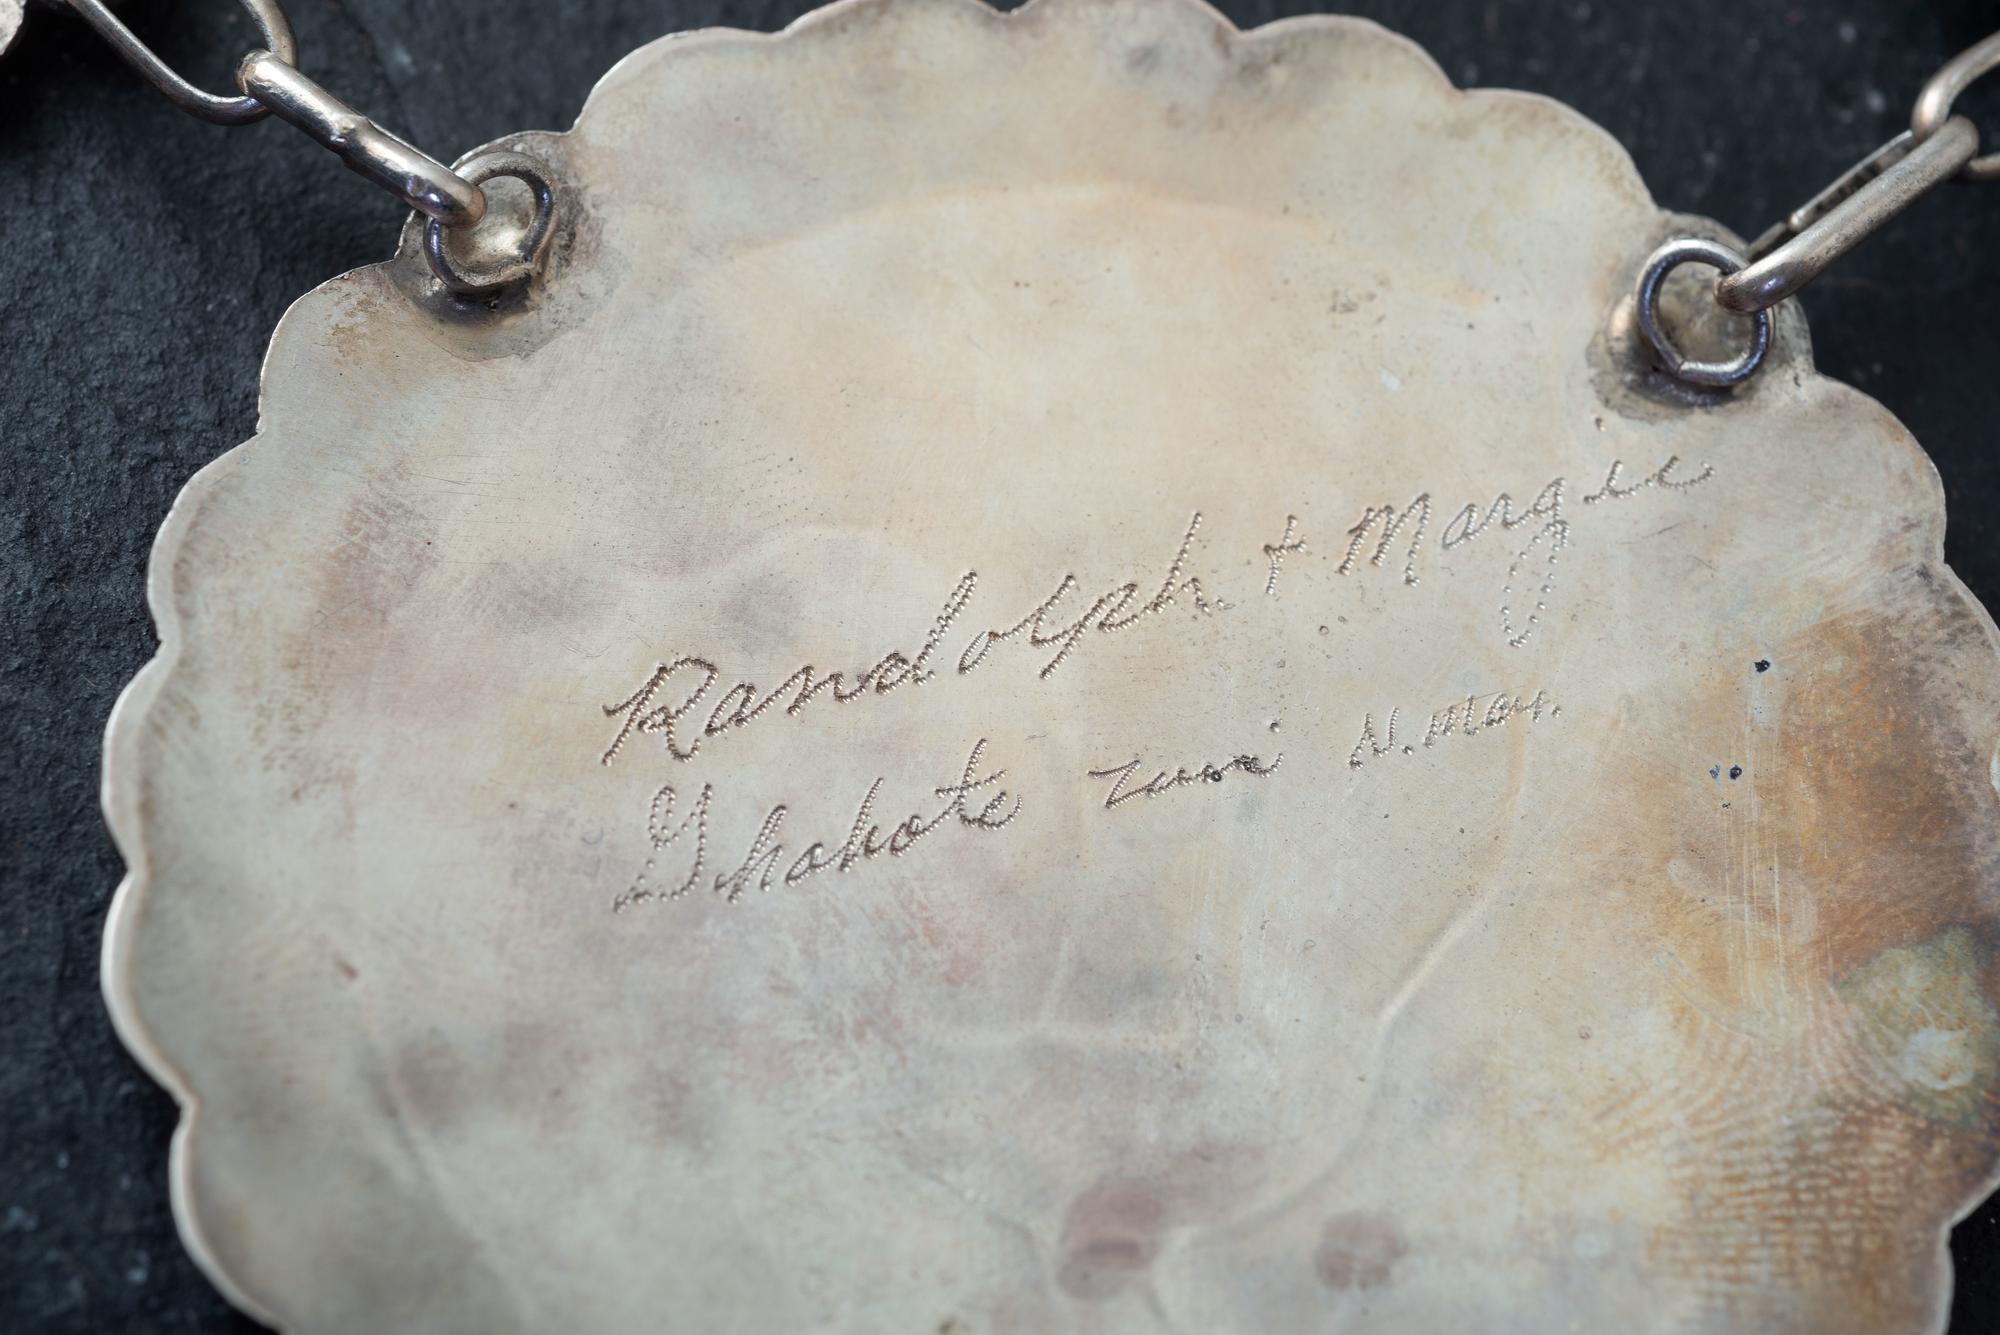 Randolph + Margie
Ghahate zuni N. Mex.